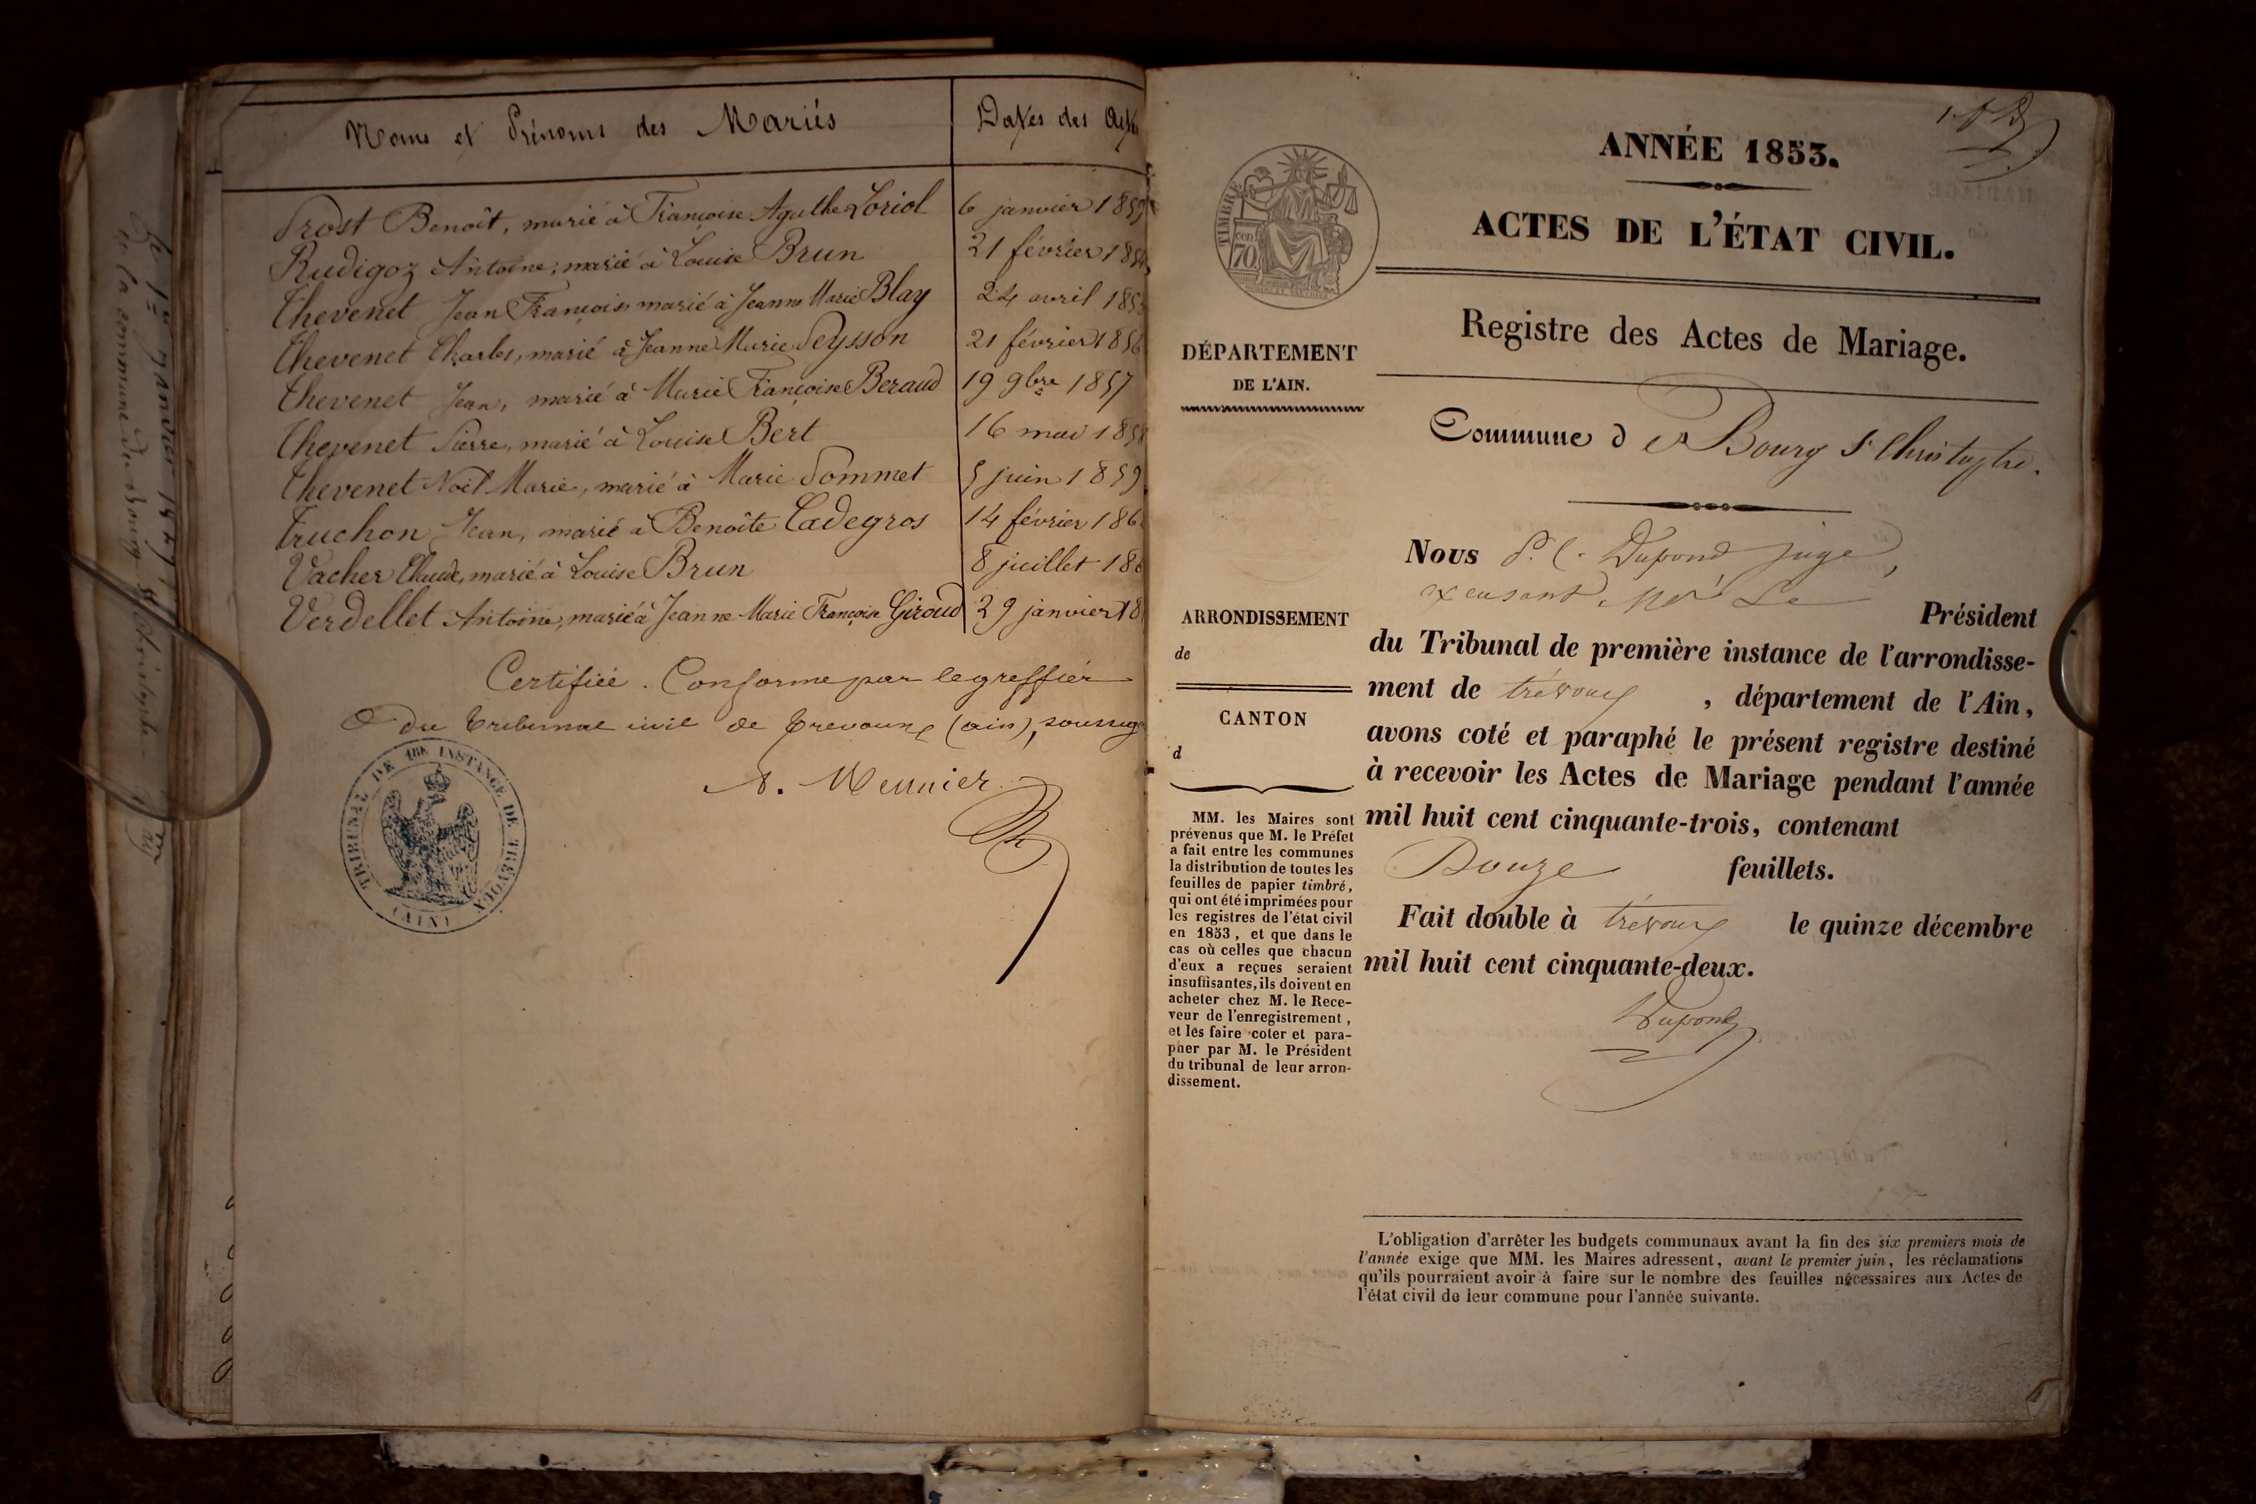 Noms et Prénoms des Mariés
Dates des Actes
Prost Benoît, marié à Françoise Agathe Loriol 6 janvier 185
Rudigoz Antoine, marié à Louise Brun 21 février 185
Thevenet Jean François marié à Jeanne Marie Blay 24 avril 185
Thevenet Charles, marié à Jeanne Marie Peysson 21 février 185
Thevenet Jean, marié à Marie Françoise Beraud 19 9bre 1857
Thevenet Pierre, marié à Louise Bert 16 mai 185
Thevenet Noël Marie, marié à Marie Pommet 5 juin 1859
Truchon Jean, marié à Benoîte Cadegros 14 février 186
Vacher Claude, marié à Louise Brun 8 juillet 18
Verdellet Antoine, marié à Jeanne Marie Françoise Giroud 29 janvier 18
Certifiée Conforme par le greffier
du tribunal civil de Trevoux (ain), soussig
Meunier
TRIBUNAL DE 1ERE INSTANCE DE TREVOUX
(AIN)
ANNÉE 1853.
ACTES DE L'ÉTAT CIVIL.
Registre des Actes de Mariage.
Commune d Bourg St Christophe.
TIMBRE
70
DÉPARTEMENT
DE L'AIN.
ARRONDISSEMENT
de
CANTON
d
MM. les Maires sont
prévenus que M. le Préfet
a fait entre les communes
la distribution de toutes les
feuilles de papier timbré,
qui ont été imprimées pour
les registres de l'état civil
en 1853, et que dans le
cas où celles que chacun
d'eux a reçues seraient
insuffisantes, ils doivent en
acheter chez M. le Rece-
veur de l'enregistrement,
et les faire coter et para-
pher par M. le Président
du tribunal de leur arron-
dissement.
Nous Dupond juge,
Le Président
du Tribunal de première instance de l'arrondisse-
ment de trévoux, département de l'Ain,
avons coté et paraphé le présent registre destiné
à recevoir les Actes de Mariage pendant l'année
mil huit cent cinquante-trois, contenant
Douze feuillets.
Fait double à trévoux le quinze décembre
mil huit cent cinquante-deux.
Dupond
L'obligation d'arrêter les budgets communaux avant la fin des six premiers mois de
l'année exige que MM. les Maires adressent, avant le premier juin, les réclamations
qu'ils pourraient avoir à faire sur le nombre des feuilles nécessaires aux Actes de
l'état civil de leur commune pour l'année suivante.